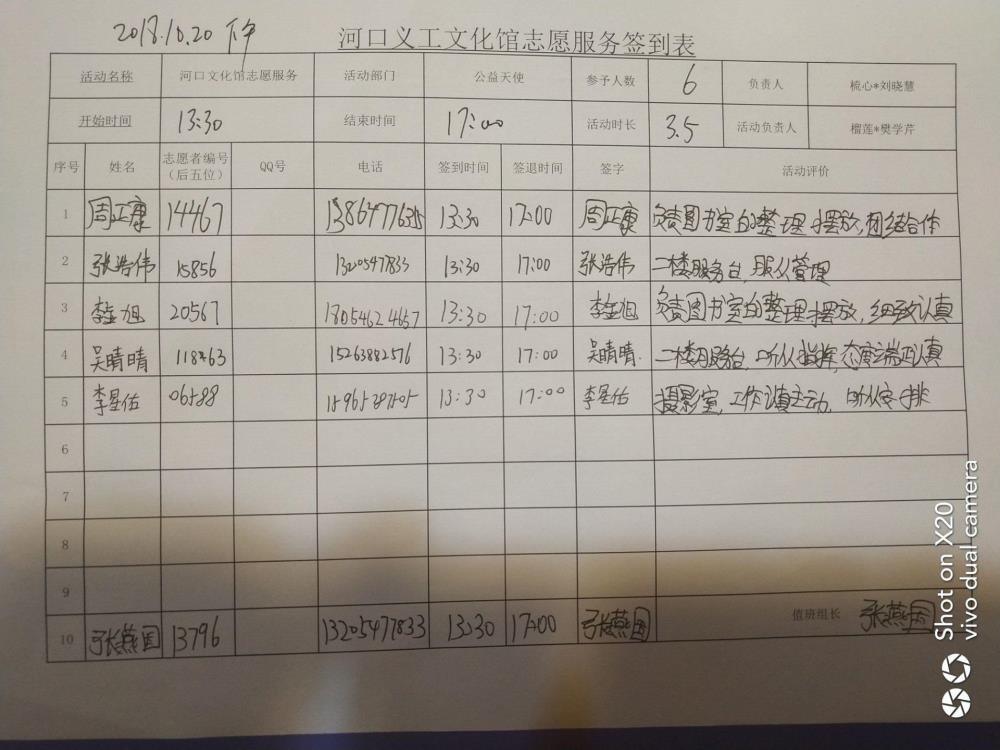 2018.10.20 下午
河口义工文化馆志愿服务签到表
活动名称 河口文化馆志愿服务 活动部门 公益天使 参予人数 6 负责人 梳心*刘晓慧
开始时间 13:30 结束时间 17:00 活动时长 3.5 活动负责人 榴莲*樊学芹
序号 姓名 志愿者编号(后五位) QQ号 电话 签到时间 签退时间 签字 活动评价
1 周正康 14467 13:30 17:00 周正康 负责图书室的整理摆放,团结合作
2 张浩伟 15856 13205477833 13:30 17:00 张浩伟 二楼服务台,服从管理
3 20567 18054624667 13:30 17:00 负责图书室的整理摆放,细致认真
4 吴晴晴 15263882576 13:30 17:00 吴晴晴. 二楼服务台,听从指挥,态度端正认真
5 李星佑 06588 13:30 17:00 李星佑 摄影室,工作认真主动,听从安排
6
7
8
9
10 张燕国 13796 13205477833 13:30 17:00 张燕国 值班组长 张燕国
Shot on X20
vivo dual camera